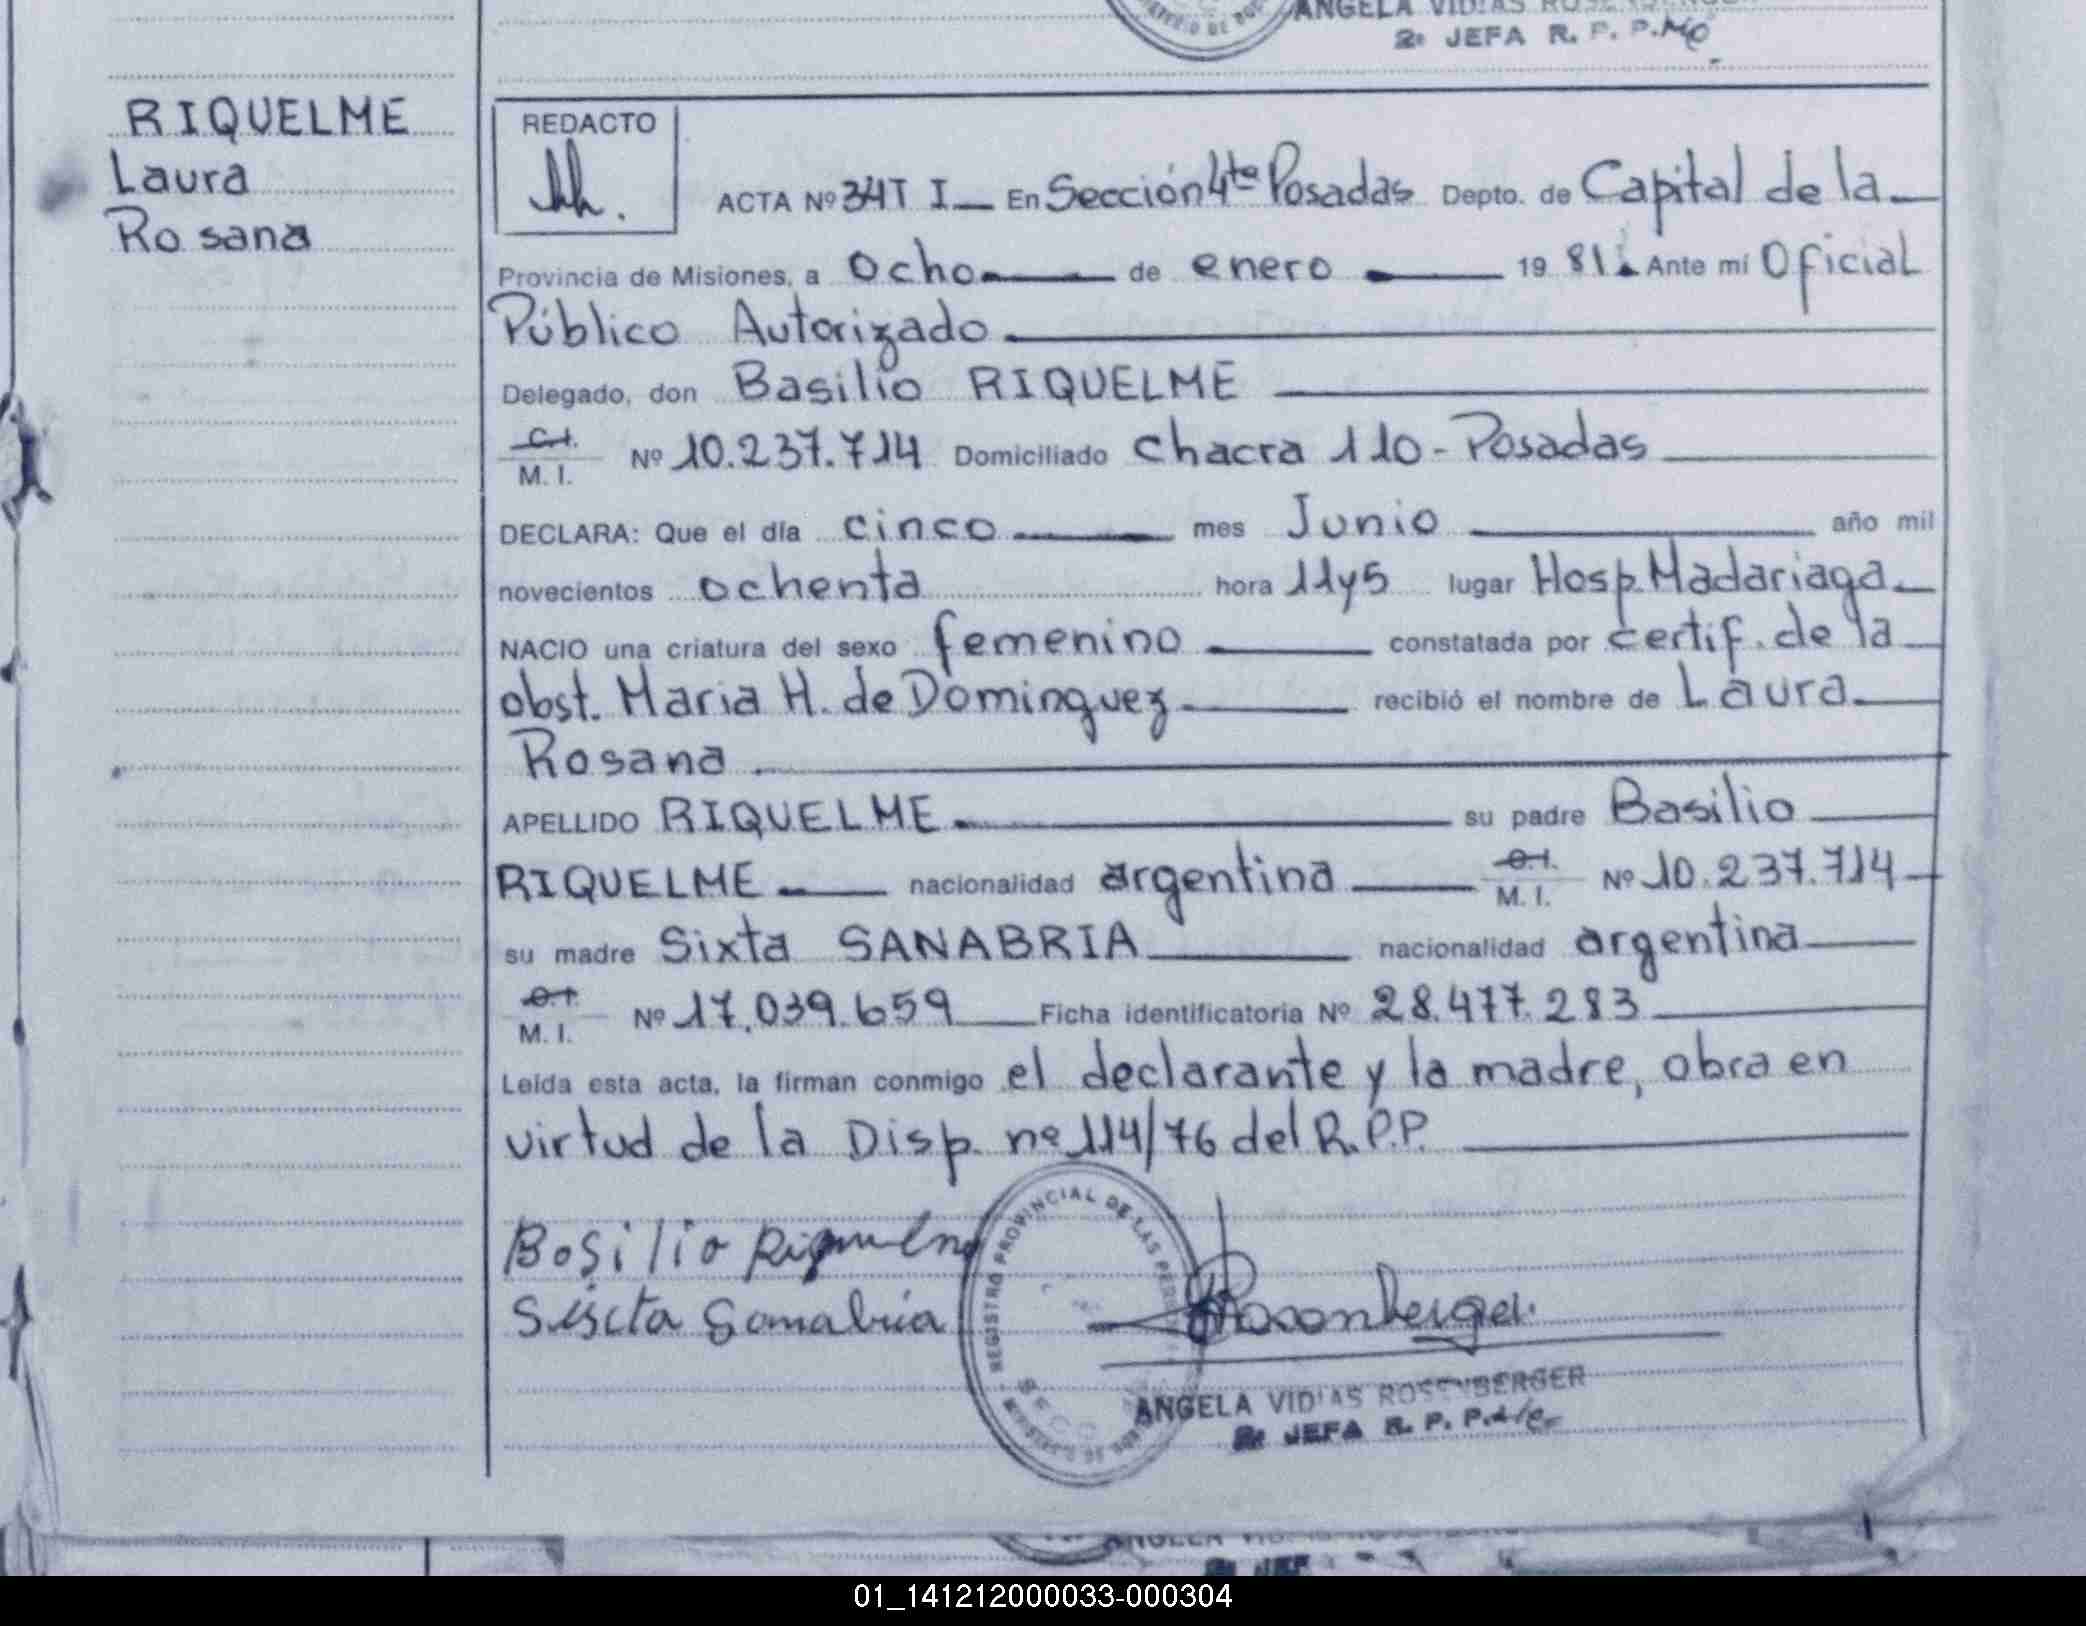 ANGELA VIDIAS
2º JEFA R. P. P.
RIQUELME
Laura
Rosana
REDACTO
ACTA Nº 34T I En Sección 4ta Posadas Depto. de Capital de la
Provincia de Misiones, a ocho de enero 19 81. Ante mí Oficial
Público Autorizado
Delegado, don Basilio RIQUELME
C.I.
M. I. Nº 10.237.714 Domiciliado Chacra 110 - Posadas
DECLARA: Que el día cinco mes Junio año mil
novecientos ochenta hora 11y5 lugar Hosp. Madariaga
NACIO una criatura del sexo femenino constatada por certif. de la
obst. Maria H. de Dominguez recibió el nombre de Laura
Rosana
APELLIDO RIQUELME su padre Basilio
RIQUELME nacionalidad argentina C.I. M. I. Nº 10.237.714
su madre Sixta SANABRIA nacionalidad argentina
C.I.
M. I. Nº 17.039.659 Ficha identificatoria Nº 28.477.283
Leída esta acta, la firman conmigo el declarante y la madre, obra en
virtud de la Disp. nº 114/76 del R.P.P.
REGISTRO PROVINCIAL DE LAS
Bosilio Riquelme
Siscta Sanabria
Rosenberger
ANGELA VIDIAS ROSENBERGER
2º JEFA R. P. P.
01_141212000033-000304